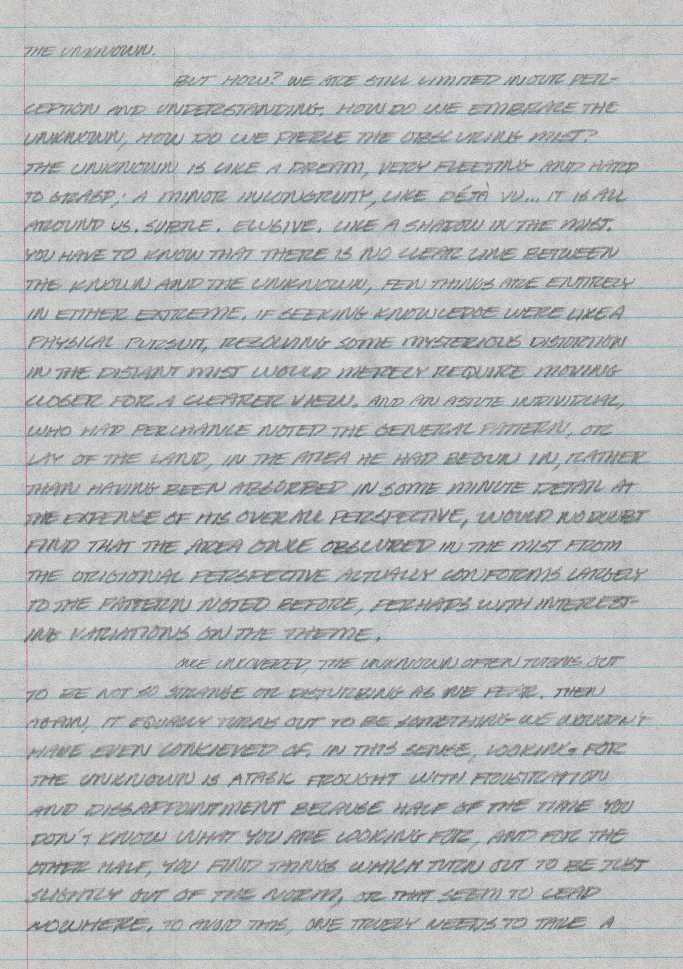 THE UNKNOWN.
BUT HOW? WE ARE STILL LIMITED IN OUR PER-
CEPTION AND UNDERSTANDING. HOW DO WE EMBRACE THE
UNKNOWN, HOW DO WE PIERCE THE OBSCURING MIST?
THE UNKNOWN IS LIKE A DREAM, VERY FLEETING AND HARD
TO GRASP; A MINOR INCONGRUITY, LIKE DÉJÀ VU... IT IS ALL
AROUND US. SUBTLE. ELUSIVE. LIKE A SHADOW IN THE MIST.
YOU HAVE TO KNOW THAT THERE IS NO CLEAR LINE BETWEEN
THE KNOWN AND THE UNKNOWN, FEW THINGS ARE ENTIRELY
IN EITHER EXTREME. IF SEEKING KNOWLEDGE WERE LIKE A
PHYSICAL PURSUIT, RESOLVING SOME MYSTERIOUS DISTORTION
IN THE DISTANT MIST WOULD MERELY REQUIRE MOVING
CLOSER FOR A CLEARER VIEW. AND AN ASTUTE INDIVIDUAL,
WHO HAD PERCHANCE NOTED THE GENERAL PATTERN, OR
LAY OF THE LAND, IN THE AREA HE HAD BEGUN IN, RATHER
THAN HAVING BEEN ABSORBED IN SOME MINUTE DETAIL AT
THE EXPENSE OF HIS OVERALL PERSPECTIVE, WOULD NO DOUBT
FIND THAT THE AREA ONCE OBSCURED IN THE MIST FROM
THE ORIGIONAL PERSPECTIVE ACTUALLY CONFORMS LARGELY
TO THE PATTERN NOTED BEFORE, PERHAPS WITH INTEREST-
ING VARIATIONS ON THE THEME.
ONCE UNCOVERED, THE UNKNOWN OFTEN TURNS OUT
TO BE NOT SO STRANGE OR DISTURBING AS WE FEAR. THEN
AGAIN, IT EQUALLY TURNS OUT TO BE SOMETHING WE WOULDN'T
HAVE EVEN CONCIEVED OF. IN THIS SENSE, LOOKING FOR
THE UNKNOWN IS A TASK FROUGHT WITH FRUSTRATION
AND DISSAPPOINTMENT BECAUSE HALF OF THE TIME YOU
DON'T KNOW WHAT YOU ARE LOOKING FOR, AND FOR THE
OTHER HALF, YOU FIND THINGS WHICH TURN OUT TO BE JUST
SLIGHTLY OUT OF THE NORM, OR THAT SEEM TO LEAD
NOWHERE. TO AVOID THIS, ONE TRUELY NEEDS TO TAKE A